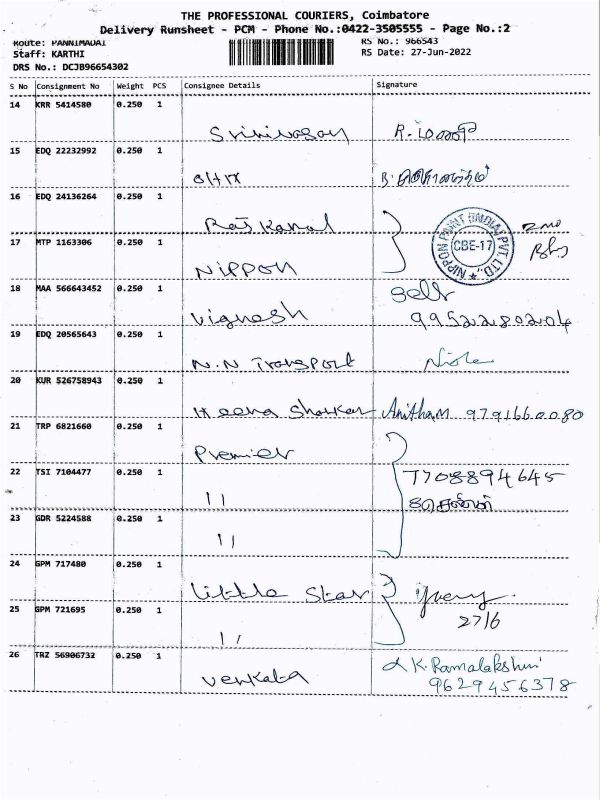 THE PROFESSIONAL COURIERS, Coimbatore
Delivery Runsheet - PCM - Phone No.:0422-3505555 - Page No.:2
Route: PANNIMADAI
RS No.: 966543
Staff: KARTHI
RS Date: 27-Jun-2022
DRS No.: DCJB96654302
S No Consignment No Weight PCS Consignee Details Signature
14 KRR 5414580 0.250 1
Srinivasan R.
15 EDQ 22232992 0.250 1
16 EDQ 24136264 0.250 1
Raj Kamal
NIPPON PAINT (INDIA) PVT. LTD.,
CBE-17
17 MTP 1163306 0.250 1
Nippon
18 MAA 566643452 0.250 1
Self
Vignesh 9952280204
19 EDQ 20565643 0.250 1
N.N Transport
20 KUR 526758943 0.250 1
Heena Anitha.M 9791660080
21 TRP 6821660 0.250 1
Premier
22 TSI 7104477 0.250 1
7708894645
11
23 GDR 5224588 0.250 1
11
24 GPM 717480 0.250 1
Little Star
25 GPM 721695 0.250 1
27/6
11
26 TRZ 56906732 0.250 1
K.Ramalakshmi
Venkata 9629456378